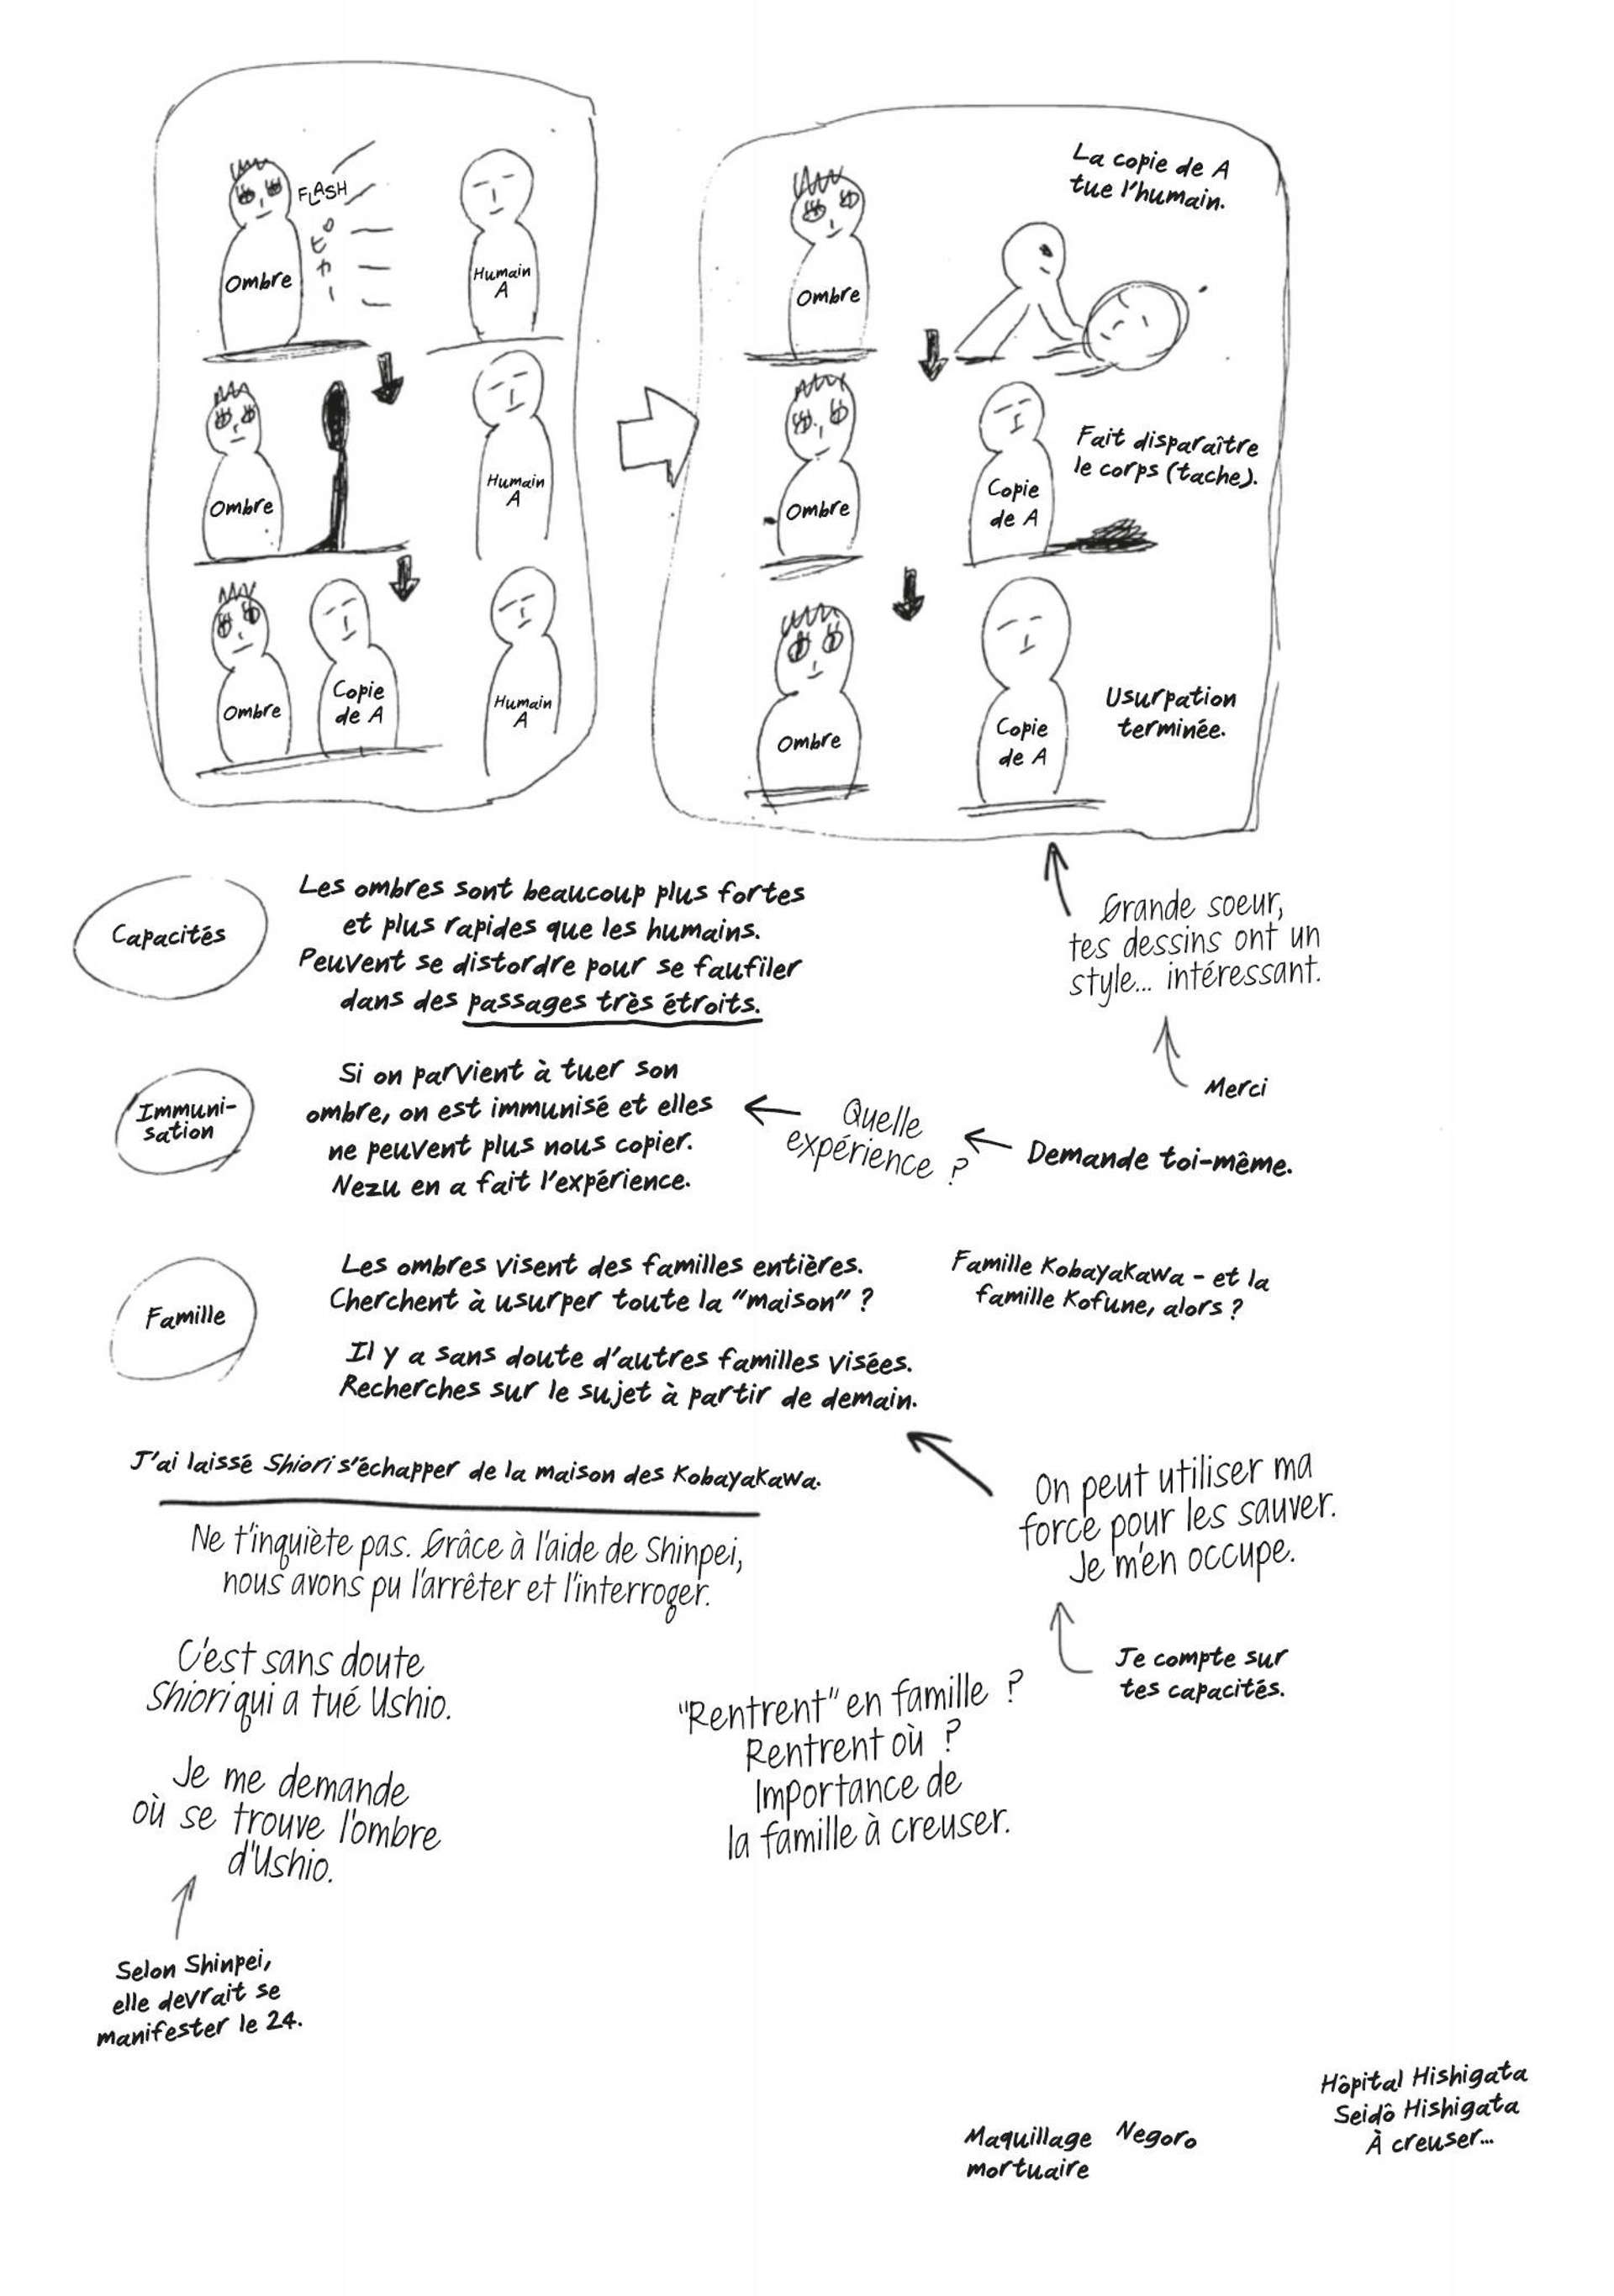 FLASH
ピカー
Ombre
Humain
A
Ombre
Humain
A
Ombre
Copie
de A
Humain
A
La copie de A
tue l'humain.
Ombre
Ombre
Copie
de A
Fait disparaître
le corps (tache).
Ombre
Copie
de A
Usurpation
terminée.
Grande soeur,
tes dessins ont un
style... intéressant.
Merci
Capacités
Les ombres sont beaucoup plus fortes
et plus rapides que les humains.
Peuvent se distordre pour se faufiler
dans des passages très étroits.
Immuni-
sation
Si on parvient à tuer son
ombre, on est immunisé et elles
ne peuvent plus nous copier.
Nezu en a fait l'expérience.
Quelle
expérience ?
Demande toi-même.
Famille
Les ombres visent des familles entières.
Cherchent à usurper toute la "maison" ?
Famille Kobayakawa - et la
famille Kofune, alors ?
Il y a sans doute d'autres familles visées.
Recherches sur le sujet à partir de demain.
J'ai laissé Shiori s'échapper de la maison des Kobayakawa.
On peut utiliser ma
force pour les sauver.
Je m'en occupe.
Je compte sur
tes capacités.
Ne t'inquiète pas. Grâce à l'aide de Shinpei,
nous avons pu l'arrêter et l'interroger.
C'est sans doute
Shiori qui a tué Ushio.
"Rentrent" en famille ?
Rentrent où ?
Importance de
la famille à creuser.
Je me demande
où se trouve l'ombre
d'Ushio.
Selon Shinpei,
elle devrait se
manifester le 24.
Maquillage
mortuaire
Negoro
Hôpital Hishigata
Seidô Hishigata
À creuser...